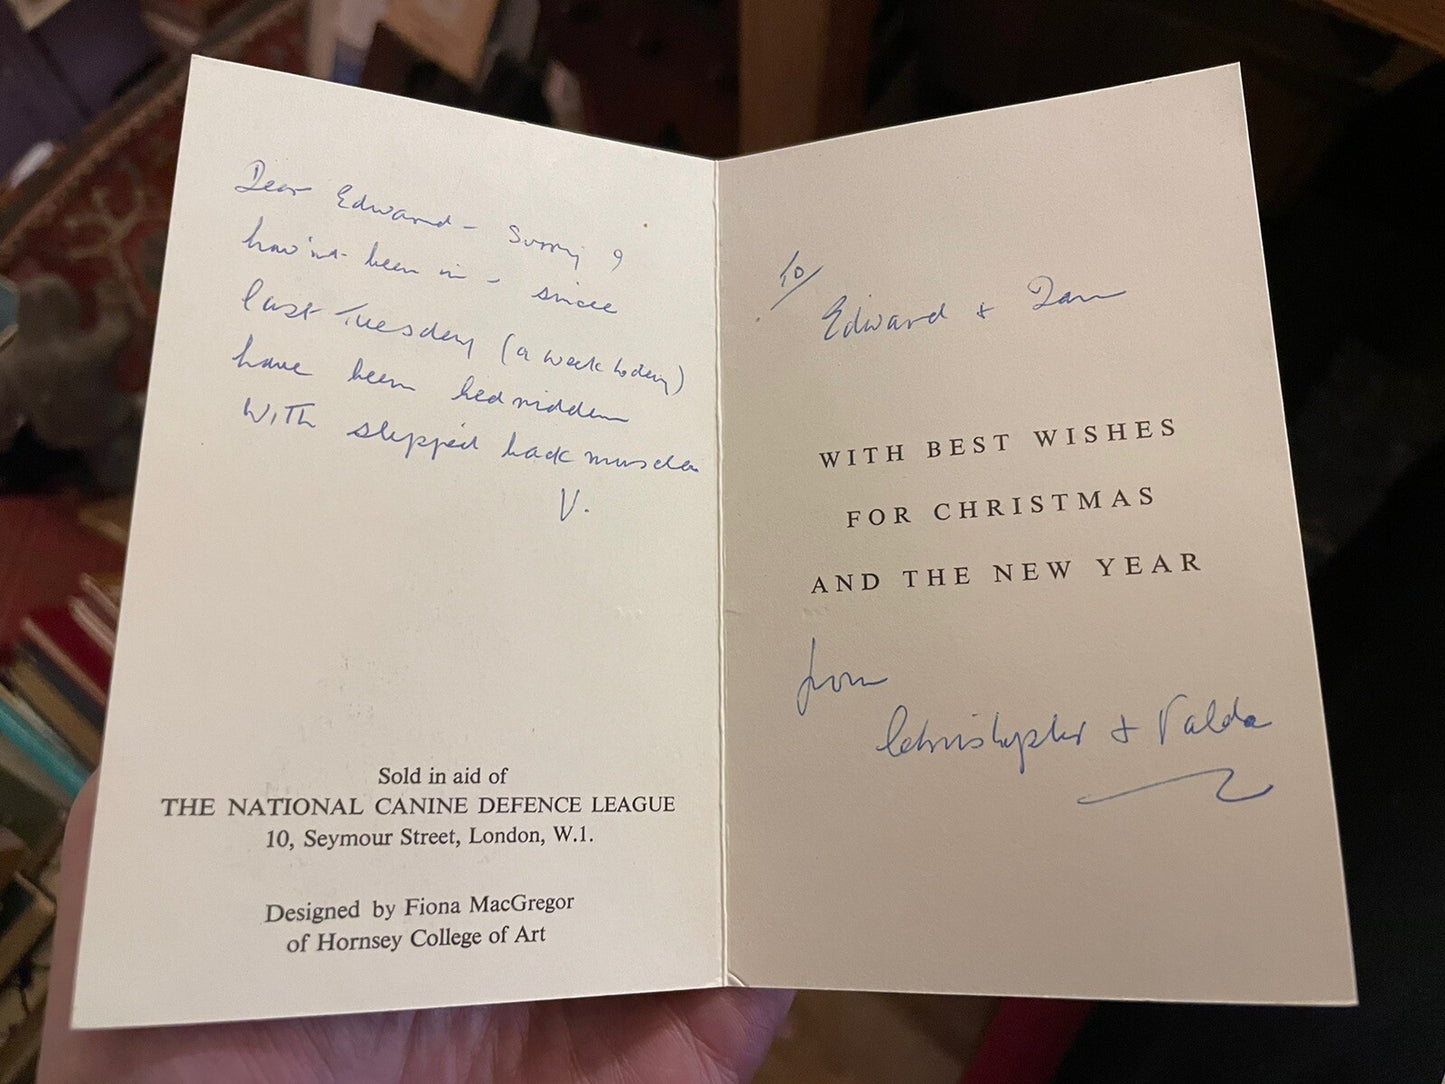 Dear Edward - Sorry I
hav'nt been in - since
last Tuesday (a week today)
have been bedridden
With slipped back muscles
V.
Sold in aid of
THE NATIONAL CANINE DEFENCE LEAGUE
10, Seymour Street, London, W.1.
Designed by Fiona MacGregor
of Hornsey College of Art
To
Edward +
WITH BEST WISHES
FOR CHRISTMAS
AND THE NEW YEAR
from
Christopher + Valda